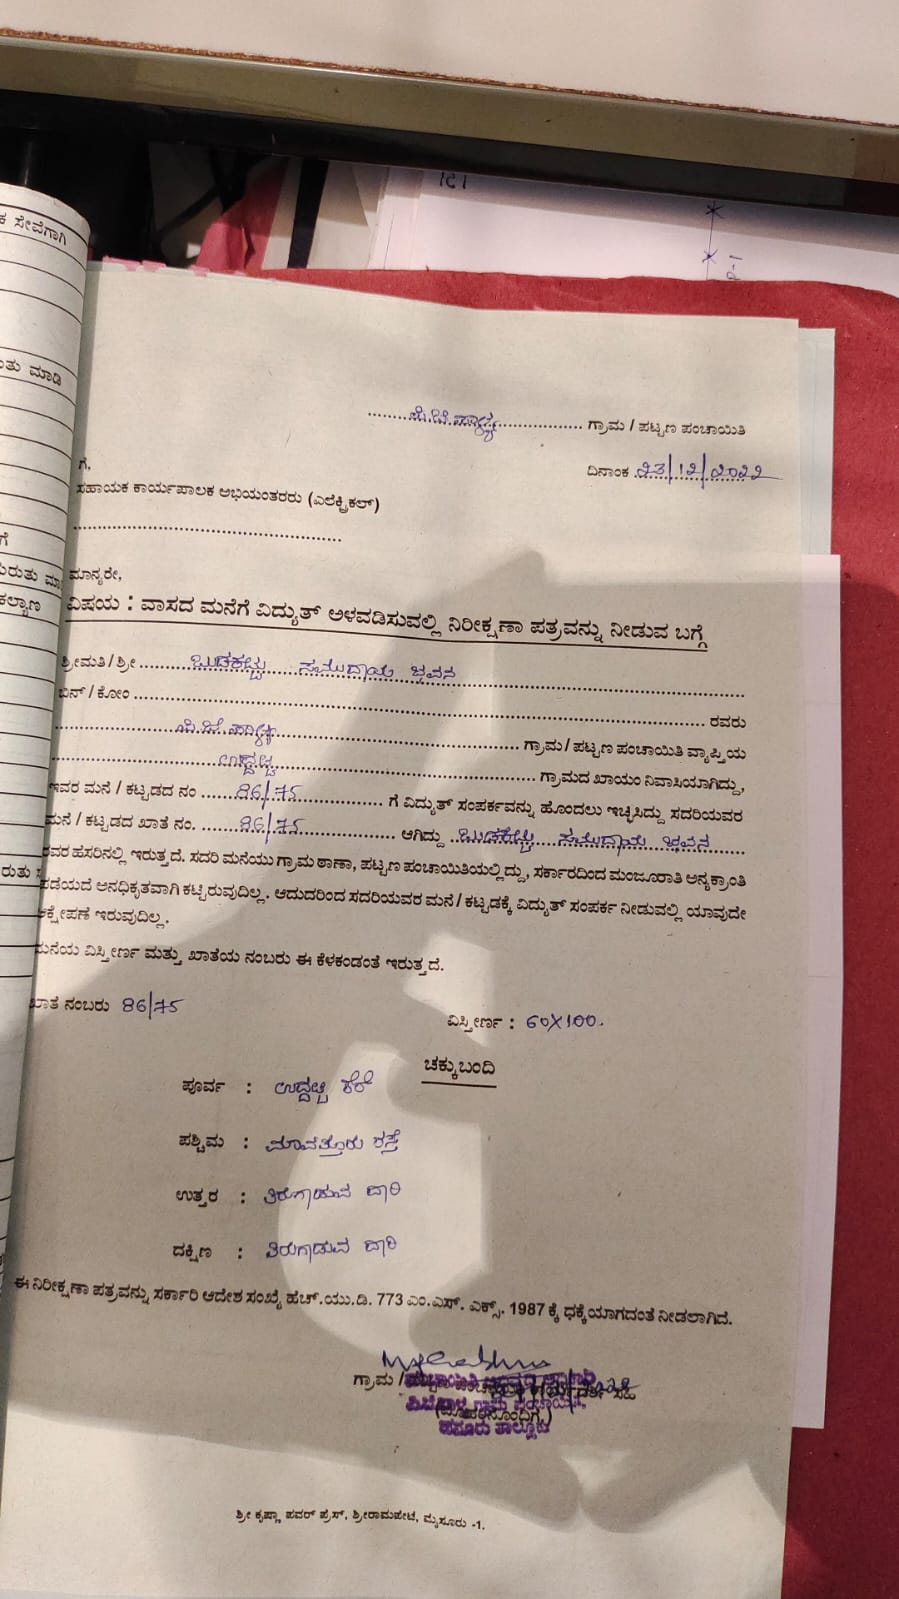 ಕ ಸೇವೆಗಾಗಿ
ಮಾಡಿ
ಕಲ್ಯಾಣ
........ಪಿ.ಜಿ.ಪಾಳ್ಯ................. ಗ್ರಾಮ / ಪಟ್ಟಣ ಪಂಚಾಯಿತಿ
ದಿನಾಂಕ 23/12/2022
ಗೆ,
ಸಹಾಯಕ ಕಾರ್ಯಪಾಲಕ ಅಭಿಯಂತರರು (ಎಲೆಕ್ಟ್ರಿಕಲ್)
ಮಾನ್ಯರೇ,
ವಿಷಯ : ವಾಸದ ಮನೆಗೆ ವಿದ್ಯುತ್ ಅಳವಡಿಸುವಲ್ಲಿ ನಿರೀಕ್ಷಣಾ ಪತ್ರವನ್ನು ನೀಡುವ ಬಗ್ಗೆ
ಶ್ರೀಮತಿ / ಶ್ರೀ ಬುಡಕಟ್ಟು ಸಮುದಾಯ ಭವನ
ಬಿನ್ / ಕೋಂ ........ ರವರು
ಪಿ.ಜಿ.ಪಾಳ್ಯ ಗ್ರಾಮ / ಪಟ್ಟಣ ಪಂಚಾಯಿತಿ ವ್ಯಾಪ್ತಿಯ
ಉದ್ದಟ್ಟಿ ಗ್ರಾಮದ ಖಾಯಂ ನಿವಾಸಿಯಾಗಿದ್ದು,
ಇವರ ಮನೆ / ಕಟ್ಟಡದ ನಂ 86/75 ಗೆ ವಿದ್ಯುತ್ ಸಂಪರ್ಕವನ್ನು ಹೊಂದಲು ಇಚ್ಛಿಸಿದ್ದು ಸದರಿಯವರ
ಮನೆ / ಕಟ್ಟಡದ ಖಾತೆ ನಂ. 86/75 ಆಗಿದ್ದು ಬುಡಕಟ್ಟು ಸಮುದಾಯ ಭವನ
ರವರ ಹೆಸರಿನಲ್ಲಿ ಇರುತ್ತದೆ. ಸದರಿ ಮನೆಯು ಗ್ರಾಮ ಠಾಣಾ, ಪಟ್ಟಣ ಪಂಚಾಯಿತಿಯಲ್ಲಿದ್ದು, ಸರ್ಕಾರದಿಂದ ಮಂಜೂರಾತಿ ಅನ್ಯಕ್ರಾಂತಿ
ಪಡೆಯದೆ ಅನಧಿಕೃತವಾಗಿ ಕಟ್ಟಿರುವುದಿಲ್ಲ. ಆದುದರಿಂದ ಸದರಿಯವರ ಮನೆ / ಕಟ್ಟಡಕ್ಕೆ ವಿದ್ಯುತ್ ಸಂಪರ್ಕ ನೀಡುವಲ್ಲಿ ಯಾವುದೇ
ಆಕ್ಷೇಪಣೆ ಇರುವುದಿಲ್ಲ.
ಮನೆಯ ವಿಸ್ತೀರ್ಣ ಮತ್ತು ಖಾತೆಯ ನಂಬರು ಈ ಕೆಳಕಂಡಂತೆ ಇರುತ್ತದೆ.
ಖಾತೆ ನಂಬರು 86/75 ವಿಸ್ತೀರ್ಣ : 60X100.
ಚಕ್ಕುಬಂದಿ
ಪೂರ್ವ : ಉದ್ದಟ್ಟಿ ಕೆರೆ
ಪಶ್ಚಿಮ : ಮಾವತ್ತೂರು ರಸ್ತೆ
ಉತ್ತರ : ತಿರುಗಾಡುವ ದಾರಿ
ದಕ್ಷಿಣ : ತಿರುಗಾಡುವ ದಾರಿ
ಈ ನಿರೀಕ್ಷಣಾ ಪತ್ರವನ್ನು ಸರ್ಕಾರಿ ಆದೇಶ ಸಂಖ್ಯೆ ಹೆಚ್.ಯು.ಡಿ. 773 ಎಂ.ಎಸ್. ಎಕ್ಸ್. 1987 ಕ್ಕೆ ಧಕ್ಕೆಯಾಗದಂತೆ ನೀಡಲಾಗಿದೆ.
ಗ್ರಾಮ / ಸಹಿ
(ಮೊಹರಿನೊಂದಿಗೆ)
ಗ್ರಾಮ ಪಂಚಾಯಿತಿ,
ತಾಲ್ಲೂಕು
ಶ್ರೀ ಕೃಷ್ಣಾ ಪವರ್ ಪ್ರೆಸ್, ಶ್ರೀರಾಮಪೇಟೆ, ಮೈಸೂರು -1.